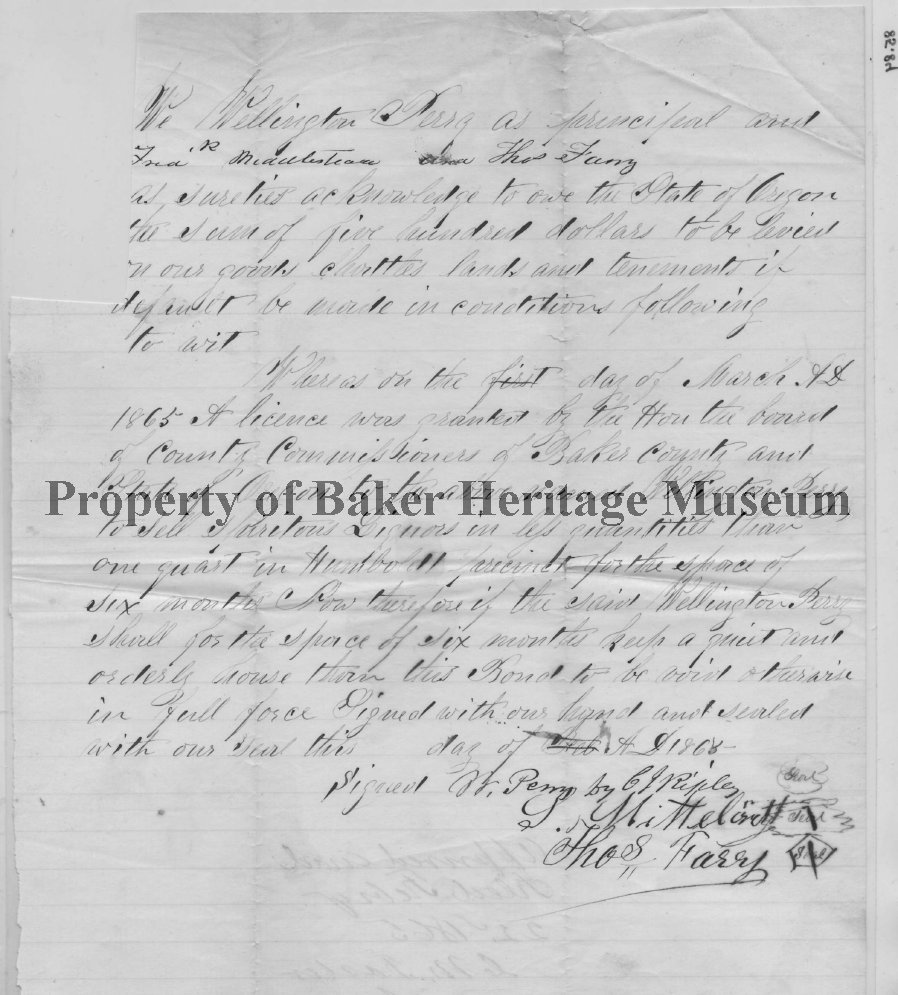 82.8.1
We Wellington Perry as principal and
Fred k Thos Farry
as sureties acknowledge to owe the State of Oregon
the sum of five hundred dollars to be levied
n our goods chattles lands and tenements if
default be made in conditions following
to wit
Whereas on the first day of March A D
1865 A licence was granted by the Hon the board
of County Commissioners of Baker county and
State of Oregon to the above named Wellington Perry
Property of Baker Heritage Museum
to sell Spiritous Liquors in less quantities than
one quart in Humboldt precinct for the space of
six months Now therefore if the said Wellington Perry
shall for the space of six months keep a quiet and
orderly house then this Bond to be void otherwise
in full force Signed with our hand and sealed
with our seal this day of Feb A D 1865
Signed W. Perry by C J Ripley Seal
Seal
Thos Farry Seal